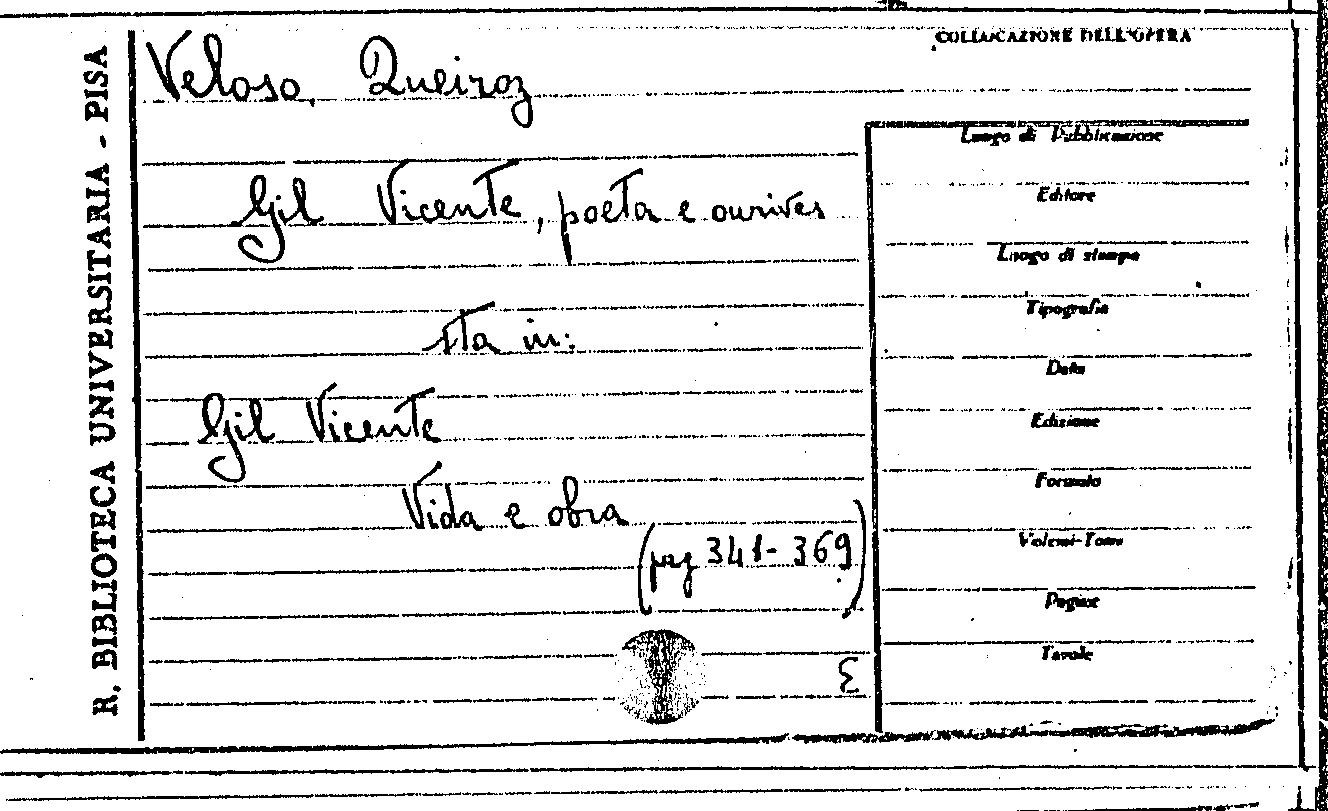 R. BIBLIOTECA UNIVERSITARIA - PISA
COLLOCAZIONE DELL'OPERA
Veloso, Queiroz
Gil Vicente, poeta e ourives
sta in:
Gil Vicente
Vida e obra
(pag 341-369)
E
Luogo di Pubblicazione
Editore
Luogo di stampa
Tipografia
Data
Edizione
Formato
Volumi-Tomi
Pagine
Tavole